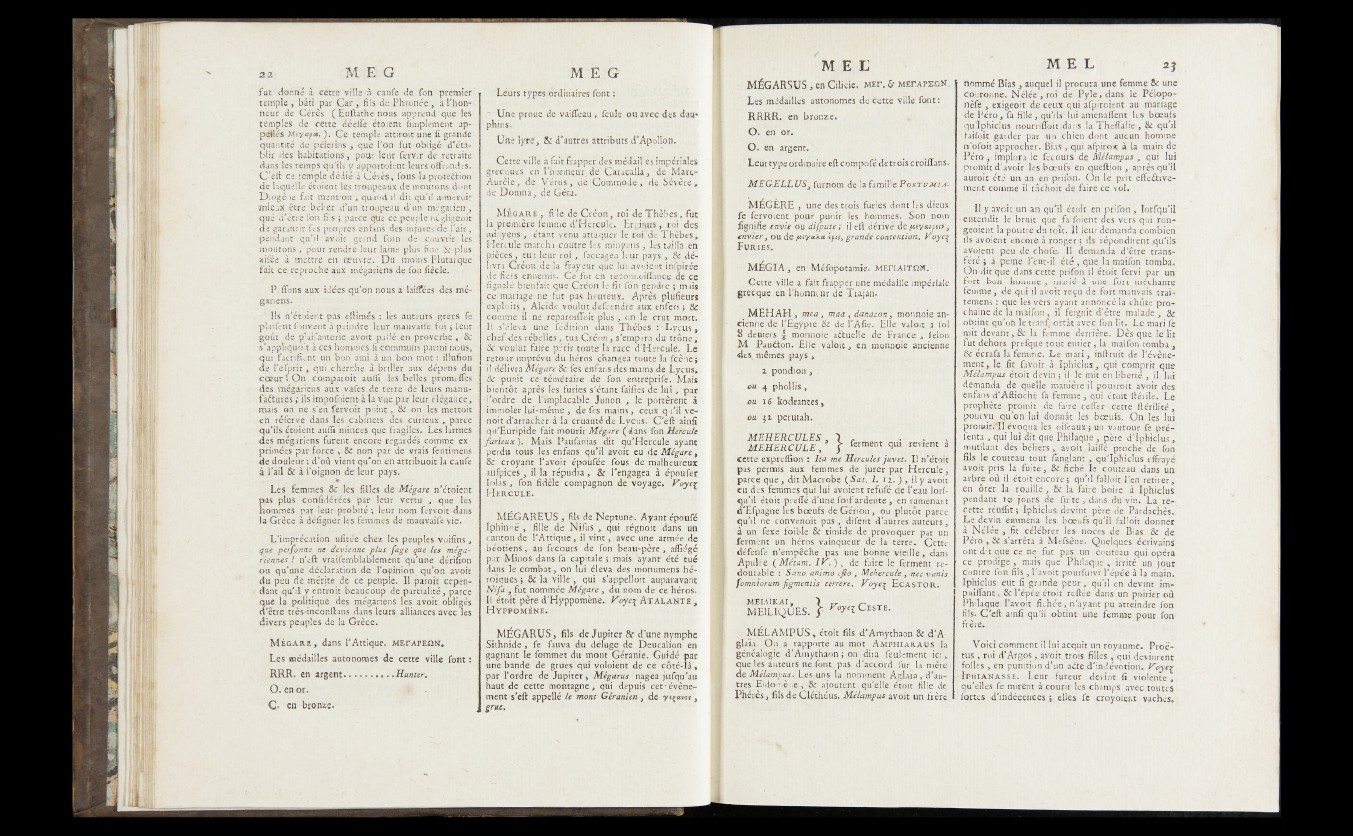 22 M E G
fut donné à cette ville à cause de son premier
temple, bâti par Car, fils de Phronée, à l'hon-
neur de Cérès (Eustathe nous apprend que les
temples de cette déesse étoient simplement ap-
pellés Μεγαρα.). Ce temple attiroit une si grande
quantité de pélerins, que l'on fut obligé d'éta-
blir des habitations, pour leur servir de retraite
dans les temps qu'ils y apportoient leurs offrandes.
C'est ce temple dédié à Cérès, sous la protection
de laquelle étoient les troupeaux de moutons dont
Diogène fait mention, quand il dit qu'il aimeroit
mieux être bélier d'un troupeau d'un mégarien,
que d'être son fils; parce que ce peuple négligeoit
de garantir ses propres enfans des injures de l'air,
pendant qu'il avoit grand soin de couvrir les
moutons, pour rendre leur laine plus fine & plus
aisée à mettre en œuvre. Du moins Plutarque
fait ce reproche aux mégariens de son siècle.
Passons aux idées qu'on nous a laissées des mé-
gariens.
Ils n'étoient pas estimés: les auteurs grecs se
plaisent souvent à peindre leur mauvaise foi; leur
goût de plaisanterie avoit passé en proverbe, &
s'appliquoit à ces hommes si communs parmi nous,
qui sacrifient un bon ami à un bon mot: illusion
de l'esprit, qui cherche à briller aux dépens du
cœur! On comparoit aussi les belles promesses
des mégariens aux vases de terre de leurs manu-
factures; ils imposoient à la vue par leur élégance,
mais on ne s'en servoit point, & on les mettoit
en réserve dans les cabinets des curieux, parce
qu'ils étoient aussi minces que fragiles. Les larmes
des mégariens furent encore regardés comme ex-
primées par force, & non par de vrais sentimens
de douleur: d'où vient qu'on en attribuoit la cause
à l'ail & à l'oignon de leur pays.
Les femmes & les filles de Mégare n'étoient
pas plus considérées par leur vertu, que les
hommes par leur probité; leur nom servoit dans
la Grèce à désigner les femmes de mauvaise vie.
L'imprécation usitée chez les peuples voisins,
que personne ne devienne plus sage que les méga-
riennes! n'est vraisemblablement qu'une dérision
ou qu'une déclaration de l'opinion qu'on avoit
du peu de mérite de ce peuple. Il paroit cepen-
dant qu'il y entroit beaucoup de partialité, parce
que la politique des mégariens les avoit obligés
d'être très-inconstans dans leurs alliances avec les
divers peuples de la Grèce.
MÉGARE, dans l'Attique. ΜΕΓΑΡΕΩΝ.
Les médailles autonomes de cette ville sont:
RRR. en argent..........Hunter.
O. en or.
C. en bronze.
M E G
Leurs types ordinaires sont:
Une proue de vaisseau, seule ou avec des dau-
phins.
Une lyre, & d'autres attributs d'Apollon.
Cette ville a fait frapper des médailles impériales
grecques en l'honneur de Caracalla, de Marc-
Aurèle, de Vérus, de Commode, de Sévère,
de Domna, de Géta.
MÉGARE, fille de Créon, roi de Thèbes, fut
la première femme d'Hercule. Erginus, roi des
minyens, étant venu attaquer le roi de Thèbes,
Hercule marcha contre les minyens, les tailla en
pièces, tua leur roi, saccagea leur pays, & dé-
livra Créon de la frayeur que lui avoient inspirée
de fiers ennemis. Ce fut en reconnoissance de ce
signalé bienfait que Créon le fit son gendre; mais
ce mariage ne fut pas heureux. Après plusieurs
exploits, Alcide voulut descendre aux enfers; &
comme il ne reparoissoit plus, on le crut mort.
Il s'éleva une sédition dans Thèbes: Lycus,
chef des rébelles, tua Créon, s'empara du trône,
& voulut faire périr toute la race d'Hercule. Le
retour imprévu du héros changea toute la scène;
il délivra Mégare & ses enfans des mains de Lycus,
& punit ce téméraire de son entreprise. Mais
bientôt après les furies s'étant saisies de lui, par
l'ordre de l'implacable Junon, le portèrent à
immoler lui-même, de ses mains, ceux qu'il ve-
noit d'arracher à la cruauté de Lycus. C'est ainsi
qu'Euripide fait mourir Mégare (dans son Hercule
furieux). Mais Pausanias dit qu'Hercule ayant
perdu tous les enfans qu'il avoit eu de Mégare,
& croyant l'avoir épousée sous de malheureux
auspices, il la répudia, & l'engagea à épouser
Iolas, son fidèle compagnon de voyage. Voyez
HERCULE.
MÉGAREUS, fils de Neptune. Ayant épousé
Iphinoe, fille de Nisus, qui régnoit dans un
canton de l'Attique, il vint, avec une armée de
béotiens, au secours de son beau-père, assiégé
par Minos dans sa capitale; mais ayant été tué
dans le combat, on lui éleva des monumens hé-
roïques; & la ville, qui s'appelloit auparavant
Nisa, fut nommée Mégare, du nom de ce héros.
Il étoit père d'Hyppomène. Voyez ATALANTE,
HYPPOMÈNE.
MÉGARUS, fils de Jupiter & d'une nymphe
Sithnide, se sauva du déluge de Deucalion en
gagnant le sommet du mont Géranie. Guidé par
une bande de grues qui voloient de ce côté-là,
par l'ordre de Jupiter, Mégarus nagea jusqu'au
haut de cette montagne, qui depuis cet évène-
ment s'est appellé le mont Géranien, de γερανος,
grue.
M E L
MÉGARSUS, en Cilicie. ΜΕΓ. & ΜΕΓΑΡΣΩΝ.
Les médailles autonomes de cette ville sont:
RRRR. en bronze.
O. en or.
O. en argent.
Leur type ordinaire est composé de trois croissans.
MEGELLUS, surnom de la famille POSTUMIA.
MÉGÈRE, une des trois furies dont les dieux
se servoient pour punir les hommes. Son nom
signifie envie ou dispute; il est dérivé de μεγαιρειν,
envier, ou de μεγαλα ερις, grande contention. Voyez
FURIES.
MÉGIA, en Mésopotamie. ΜΕΓΙΑΙΤΩΝ.
Cette ville a fait frapper une médaille impériale
grecque en l'honneur de Trajan.
MEHAH, mea, maa, danacon, monnoie an-
cienne de l'Egypte & de l'Asie. Elle valoit 1 sol
8 deniers monnoie actuelle de France, selon
M Paucton. Elle valoit, en monnoie ancienne
des mêmes pays,
2 pondion,
ou 4 phollis,
ou 16 kodrantes,
ou 32 perutah.
MEHERCULES,
MEHERCULE, } serment qui revient à
cette expression: Ita me Hercules juvet. Il n'étoit
pas permis aux femmes de jurer par Hercule,
parce que, dit Macrobe (Sat. I. 12.), il y avoit
eu des femmes qui lui avoient refusé de l'eau lors-
qu'il étoit pressé d'une soif ardente, en ramenant
d'Espagne les bœufs de Gérion, ou plutôt parce
qu'il ne convenoit pas, disent d'autres auteurs,
à un sexe foible & timide de provoquer par un
serment un héros vainqueur de la terre. Cette
défense n'empêche pas une bonne vieille, dans
Apulée (Métam. IV.), de faire le serment re-
doutable: Sano animo esto, Mehercule, nec vanis
somniorum figmentis terrere. Voyez ECASTOR.
ΜΕΙΛΙΚΑΙ,
MEILIQUES. } Voyez CESTE.
MÉLAMPUS, étoit fils d'Amythaon & d'A
glaia. On a rapporté au mot AMPHIARAUS la
généalogie d'Amythaon; on dira seulement ici,
que les auteurs ne sont pas d'accord sur la mère
de Mélampus. Les uns la nomment Aglaia, d'au-
tres Eidomène, & ajoutent qu'elle étoit fille de
Phérès, fils de Cléthéus. Mélampus avoit un frère
M E L 23
nommé Bias, auquel il procura une femme & une
couronne. Nélée, roi de Pyle, dans le Pélopo-
nèse, exigeoit de ceux qui aspiroient au mariage
de Péro, sa fille, qu'ils lui amenassent les bœufs
qu'Iphiclus nourrissoit dans la Thessalie, & qu'il
faisoit garder par un chien dont aucun homme
n'osoit approcher. Bias, qui aspiroit à la main de
Péro, implora le secours de Mélampus, qui lui
promit d'avoir les bœufs en question, après qu'il
auroit été un an en prison. On le prit effective-
ment comme il tâchoit de faire ce vol.
Il y avoit un an qu'il étoit en prison, lorsqu'il
entendit le bruit que faisoient des vers qui ron-
geoient la poutre du toît. Il leur demanda combien
ils avoient encore à ronger; ils répondirent qu'ils
avoient peu de chose. Il demanda d'être trans-
féré; à peine l'eut-il été, que la maison tomba.
On dit que dans cette prison il étoit servi par un
fort bon homme, marié à une fort méchante
femme, de qui il avoit reçu de fort mauvais trai-
temens: que les vers ayant annoncé la chûte pro-
chaine de la maison, il feignit d'être malade, &
obtint qu'on le transportât avec son lit. Le mari se
mit devant, & la femme derrière. Dès que le lit
fut dehors presque tout entier, la maison tomba,
& écrasa la femme. Le mari, instruit de l'évène-
ment, le fit savoir à Iphiclus, qui comprit que
Mélampus étoit devin; il le mit en liberté, il lui
demanda de quelle manière il pourroit avoir des
enfans d'Astioché sa femme, qui étoit stérile. Le
prophète promit de faire cesser cette stérilité,
pourvu qu'on lui donnât les bœufs. On les lui
promit. Il évoqua les oiseaux; un vautour se pré-
senta, qui lui dit que Philaque, père d'Iphiclus,
mutilant des béliers, avoit laissé proche de son
fils le couteau tout sanglant, qu'Iphiclus effrayé
avoit pris la fuite, & fiché le couteau dans un
arbre où il étoit encore; qu'il falloit l'en retirer,
en ôter la rouille, & la faire boire à Iphiclus
pendant 10 jours de suite, dans du vin. La re-
cette réussit; Iphiclus devint père de Pardachès.
Le devin emmena les bœufs qu'il falloit donner
à Nélée, fit célébrer les noces de Bias & de
Péro, & s'arrêta à Messène. Quelques écrivains
ont dit que ce ne fut pas un couteau qui opéra
ce prodige, mais que Philaque, irrité un jour
contre son fils, l'avoit poursuivi l'épée à la main.
Iphiclus eut si grande peur, qu'il en devint im-
puissant, & l'épée étoit restée dans un poirier où
Philaque l'avoit fichée, n'ayant pu atteindre son
fils. C'est ainsi qu'il obtint une femme pour son
frère.
Voici comment il lui acquit un royaume. Proë-
tus, roi d'Argos, avoit trois filles, qui devinrent
folles, en punition d'un acte d'indévotion. Voyez
IPHIANASSE. Leur fureur devint si violente,
qu'elles se mirent à courir les champs avec toutes
sortes d'indécences; elles se croyoient vaches.